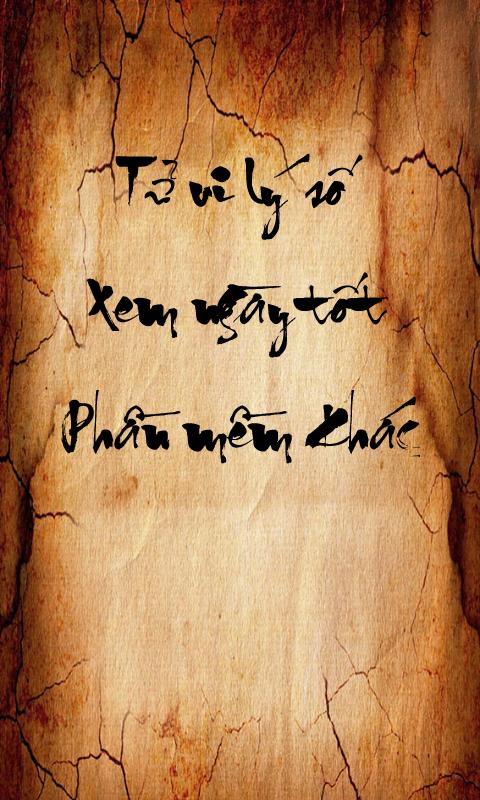 Tử vi lý số
Xem ngày tốt
Phần mềm khác